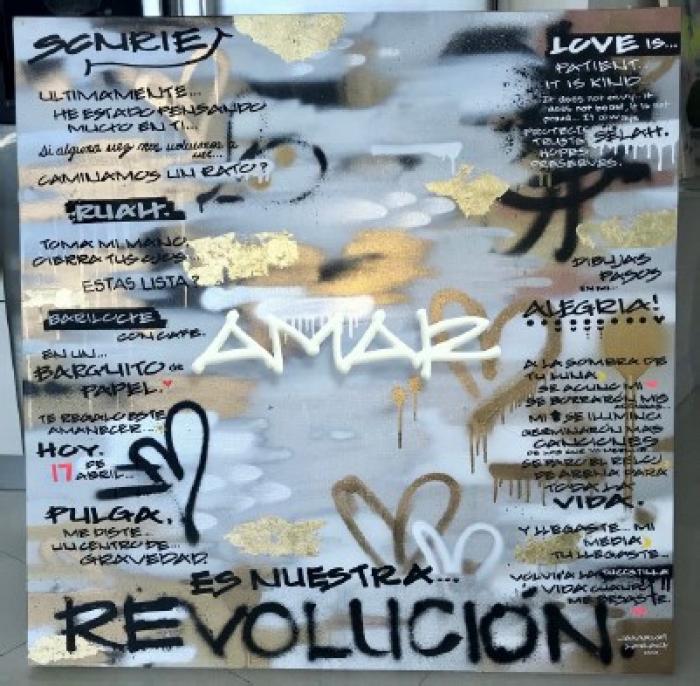 SONRIE
ULTIMAMENTE...
HE ESTADO PENSANDO
MUCHO EN TI...
Si alguna vez nos volvemos a
ver...
CAMINAMOS UN RATO?
RUAH.
TOMA MI MANO.
CIERRA TUS OJOS...
ESTAS LISTA?
BARILOCHE
CON CAFE.
EN UN...
BARQUITO de
PAPEL.
TE REGALO ESTE
AMANECER...
HOY.
17 DE
ABRIL...
PULGA.
ME DISTE..
UN CENTRO DE...
GRAVEDAD.
AMAR
LOVE IS...
PATIENT...
IT IS KIND
It does not envy.. it
does not boast, it is not
proud.. It always
PROTECTS
TRUSTS
HOPES
PERSERVERES.
SELAH.
DIBUJAS
PASOS
EN MI..
ALEGRIA!
A LA SOMBRA DE
TU LUNA
SE ACUNO MI
SE BORRARON MIS
MI SE ILUMINO
GERMINARON MAS
CANCIONES
DE LAS QUE YO
SE PARO EL RELOJ
DE ARENA PARA
TODA LA
VIDA.
Y LLEGASTE.. MI
MEDIA
TU LLEGASTE...
VOLVI A LA
TU COSTILLA
VIDA CUANDO
ME BESASTE
ES NUESTRA...
REVOLUCION.